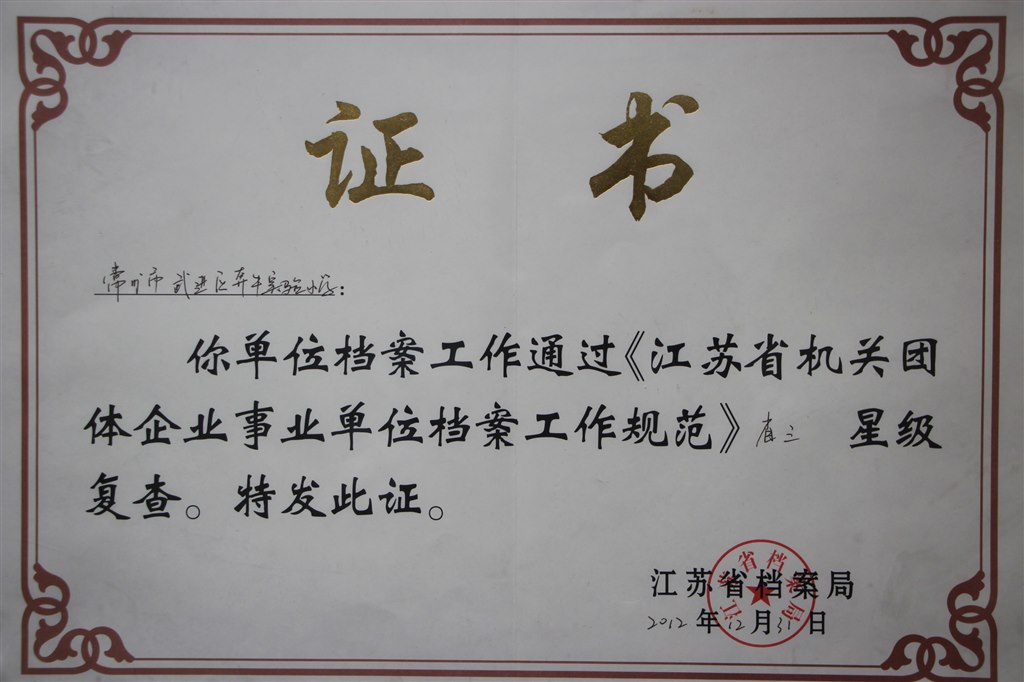 证书
常州市武进区奔牛实验小学:
你单位档案工作通过《江苏省机关团
体企业事业单位档案工作规范》省三 星级
复查。特发此证。
江苏省档案局
江苏省档案局
2012年12月31日